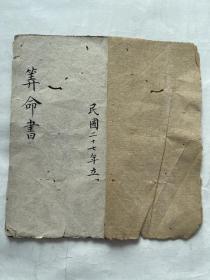 民國二十七年立
算命書